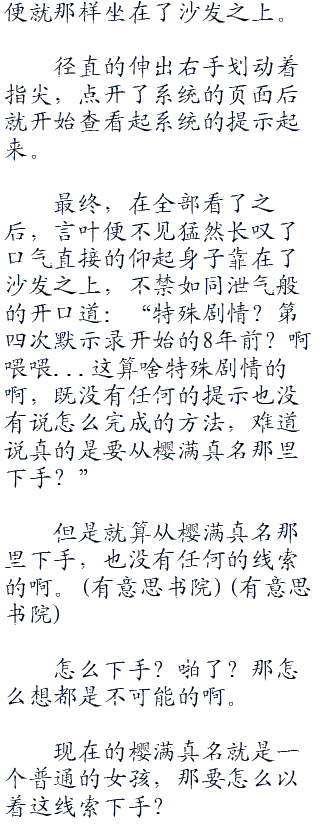 便就那样坐在了沙发之上。
径直的伸出右手划动着
指尖，点开了系统的页面后
就开始查看起系统的提示起
来。
最终，在全部看了之
后，言叶便不见猛然长叹了
口气直接的仰起身子靠在了
沙发之上，不禁如同泄气般
的开口道：“特殊剧情？第
四次默示录开始的8年前？啊
喂喂...这算啥特殊剧情的
啊，既没有任何的提示也没
有说怎么完成的方法，难道
说真的是要从樱满真名那里
下手？”
但是就算从樱满真名那
里下手，也没有任何的线索
的啊。(有意思书院)(有意思
书院)
怎么下手？啪了？那怎
么想都是不可能的啊。
现在的樱满真名就是一
个普通的女孩，那要怎么以
着这线索下手？